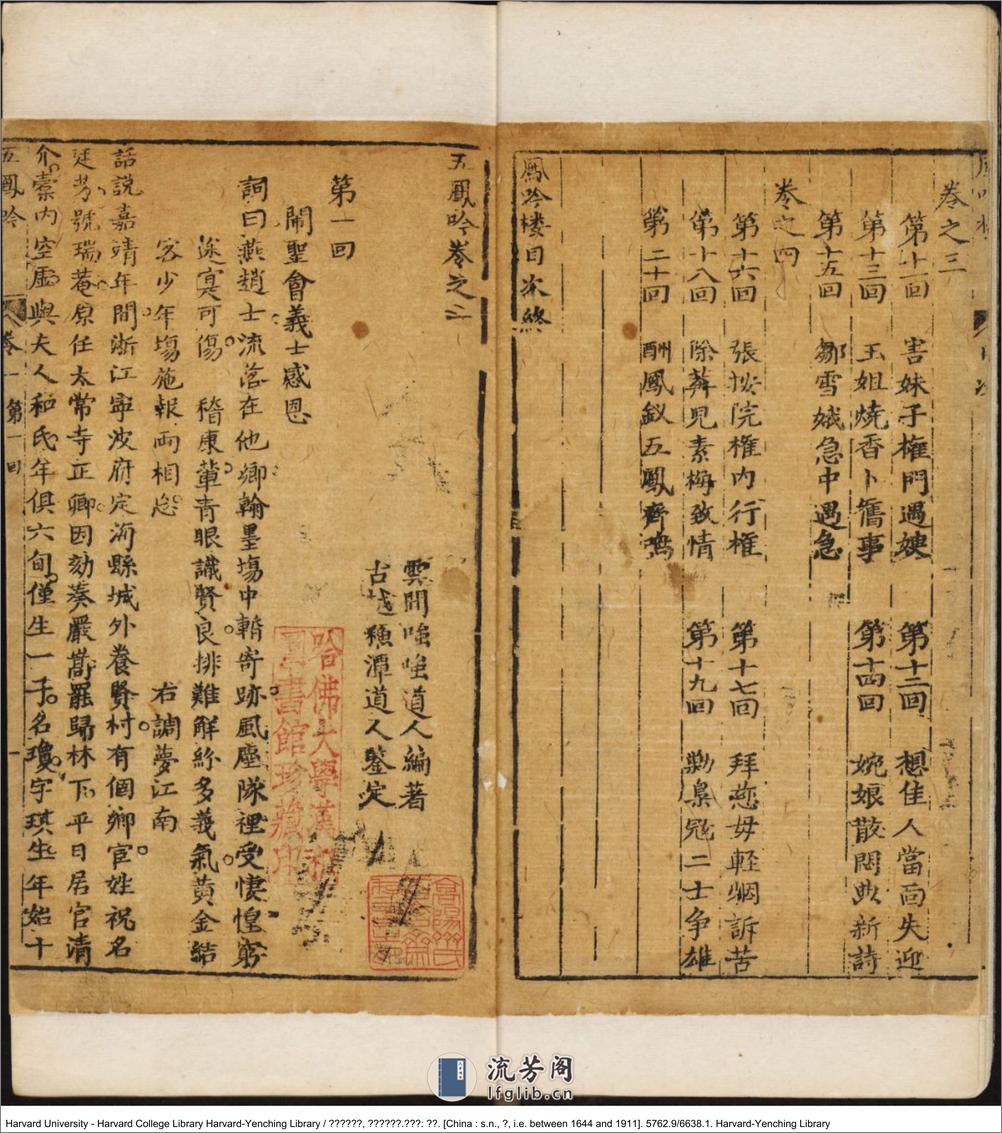 卷之三
第十一回 害妹子權門遇嫂 第十二回 想佳人當面失迎
第十三回 玉姐燒香卜舊事 第十四回 婉娘散悶典新詩
第十五回 鄒雪娥急中遇急
卷之四
第十六回 張按院權內行權 第十七回 拜慈母輕烟訴苦
第十八回 除莽兒素梅致情 第十九回 勦梟冦二士争雄
第二十回 酬鳳釵五鳳齊鳴
鳳吟楼目次終
五鳳吟卷之
雲間嗤嗤道人編著
古越蘓潭道人鑒定
第一回
鬧聖會義士感恩
詞曰燕趙士流落在他鄉翰墨場中輎寄跡風塵隊裡受悽惶窮
途寔可傷 稽康輩青眼識賢良排難解紛多義氣黃金結
客少年塲施報両相忘 右調夢江南
話說嘉靖年間浙江寧波府定海縣城外養賢村有個鄉宦姓祝名
廷芳號瑞菴原任太常寺正卿因劾奏嚴嵩罷歸林下平日居官清
介橐內空虛與夫人和氏年俱六旬僅生一子名瓊字琪生年始十
五鳳吟 卷一 第一回 一
哈佛大學漢和
圖書館珍藏印
流芳阁
lfglib.cn
Harvard University - Harvard College Library Harvard-Yenching Library / ??????, ??????.???: ??. [China : s.n., ?, i.e. between 1644 and 1911]. 5762.9/6638.1. Harvard-Yenching Library